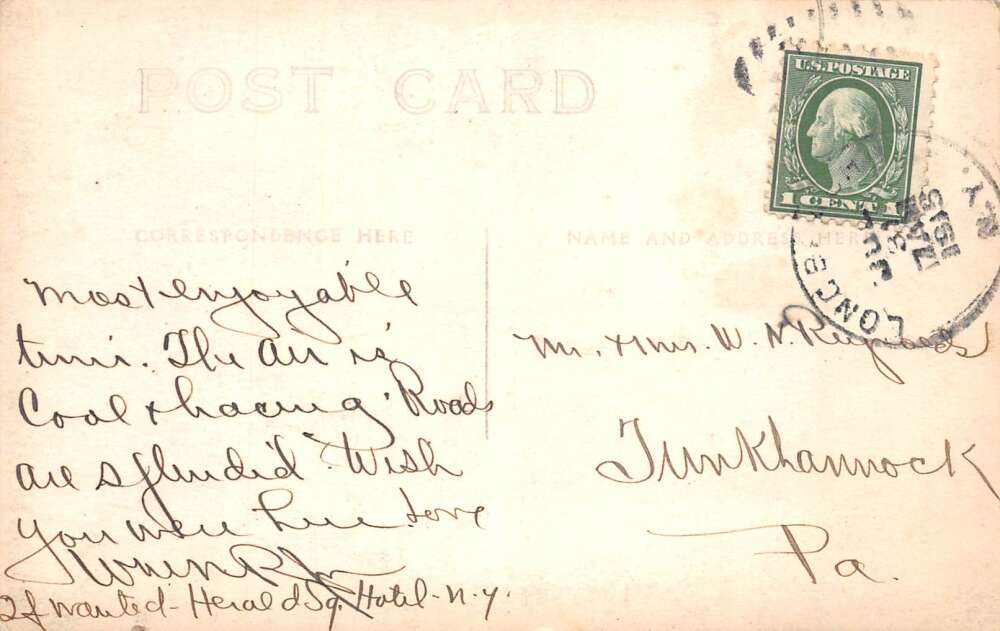 POST CARD
U.S. POSTAGE
1 CENT 1
LONG B
N.Y.
1915
CORRESPONDENCE HERE
NAME AND ADDRESS HERE
Most enjoyable
time. The air is
Cool & bracing. Roads
are splendid. Wish
you were here. Love
Mr. & Mrs. W. N. Reynolds
Tunkhannock
Pa.
If wanted - Herald Sq. Hotel - N.Y.